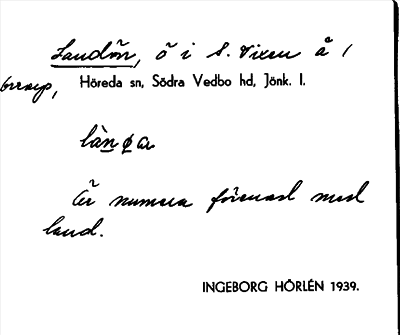 Landön, ö i S. Vixen å /
Höreda sn, Södra Vedbo hd, Jönk. l.
làn øa
Är numera förenad med
land.
INGEBORG HÖRLÉN 1939.